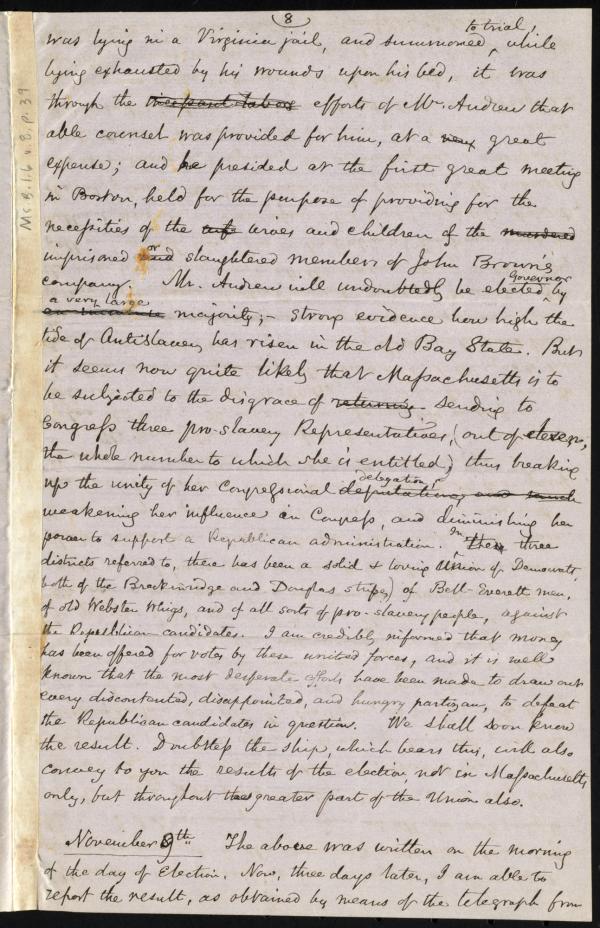 8
was lying in a Virginia jail, and summoned to trial, while
lying exhausted by his wounds upon his bed, it was
through the efforts of Mr. Andrew that
able counsel was provided for him, at a very great
expense; and he presided at the first great meeting
in Boston, held for the purpose of providing for the
necessities of the wives and children of the murdered
imprisoned and or slaughtered members of John Brown's
company. Mr. Andrew will undoubtedly be elected Governor by
a very large majority;- strong evidence how high the
tide of Antislavery has risen in the old Bay State. But
it seems now quite likely that Massachusetts is to
be subjected to the disgrace of returning sending to
Congress three pro-slavery Representatives, (out of eleven,
the whole number to which she is entitled,) thus breaking
up the unity of her Congressional deputation, and much delegation,
weakening her influence in Congress, and diminishing her
power to support a Republican administration. In these three
districts referred to, there has been a solid & loving Union of Democrats,
(both of the Breckinridge and Douglas stripes) of Bell-Everett men,
of old Webster Whigs, and of all sorts of pro-slavery people, against
the Republican candidates. I am credibly informed that money
has been offered for votes by these united forces, and it is well
known that the most desperate efforts have been made to draw out
every discontented, disappointed, and hungry partizan, to defeat
the Republican candidates in question. We shall soon know
the result. Doubtless the ship, which bears this, will also
convey to you the results of the election not in Massachusetts
only, but throughout the greater part of the Union also.
November 9th. The above was written on the morning
of the day of Election. Now, three days later, I am able to
report the result, as obtained by means of the telegraph from
Ms.B.1.6 v.8, p.39